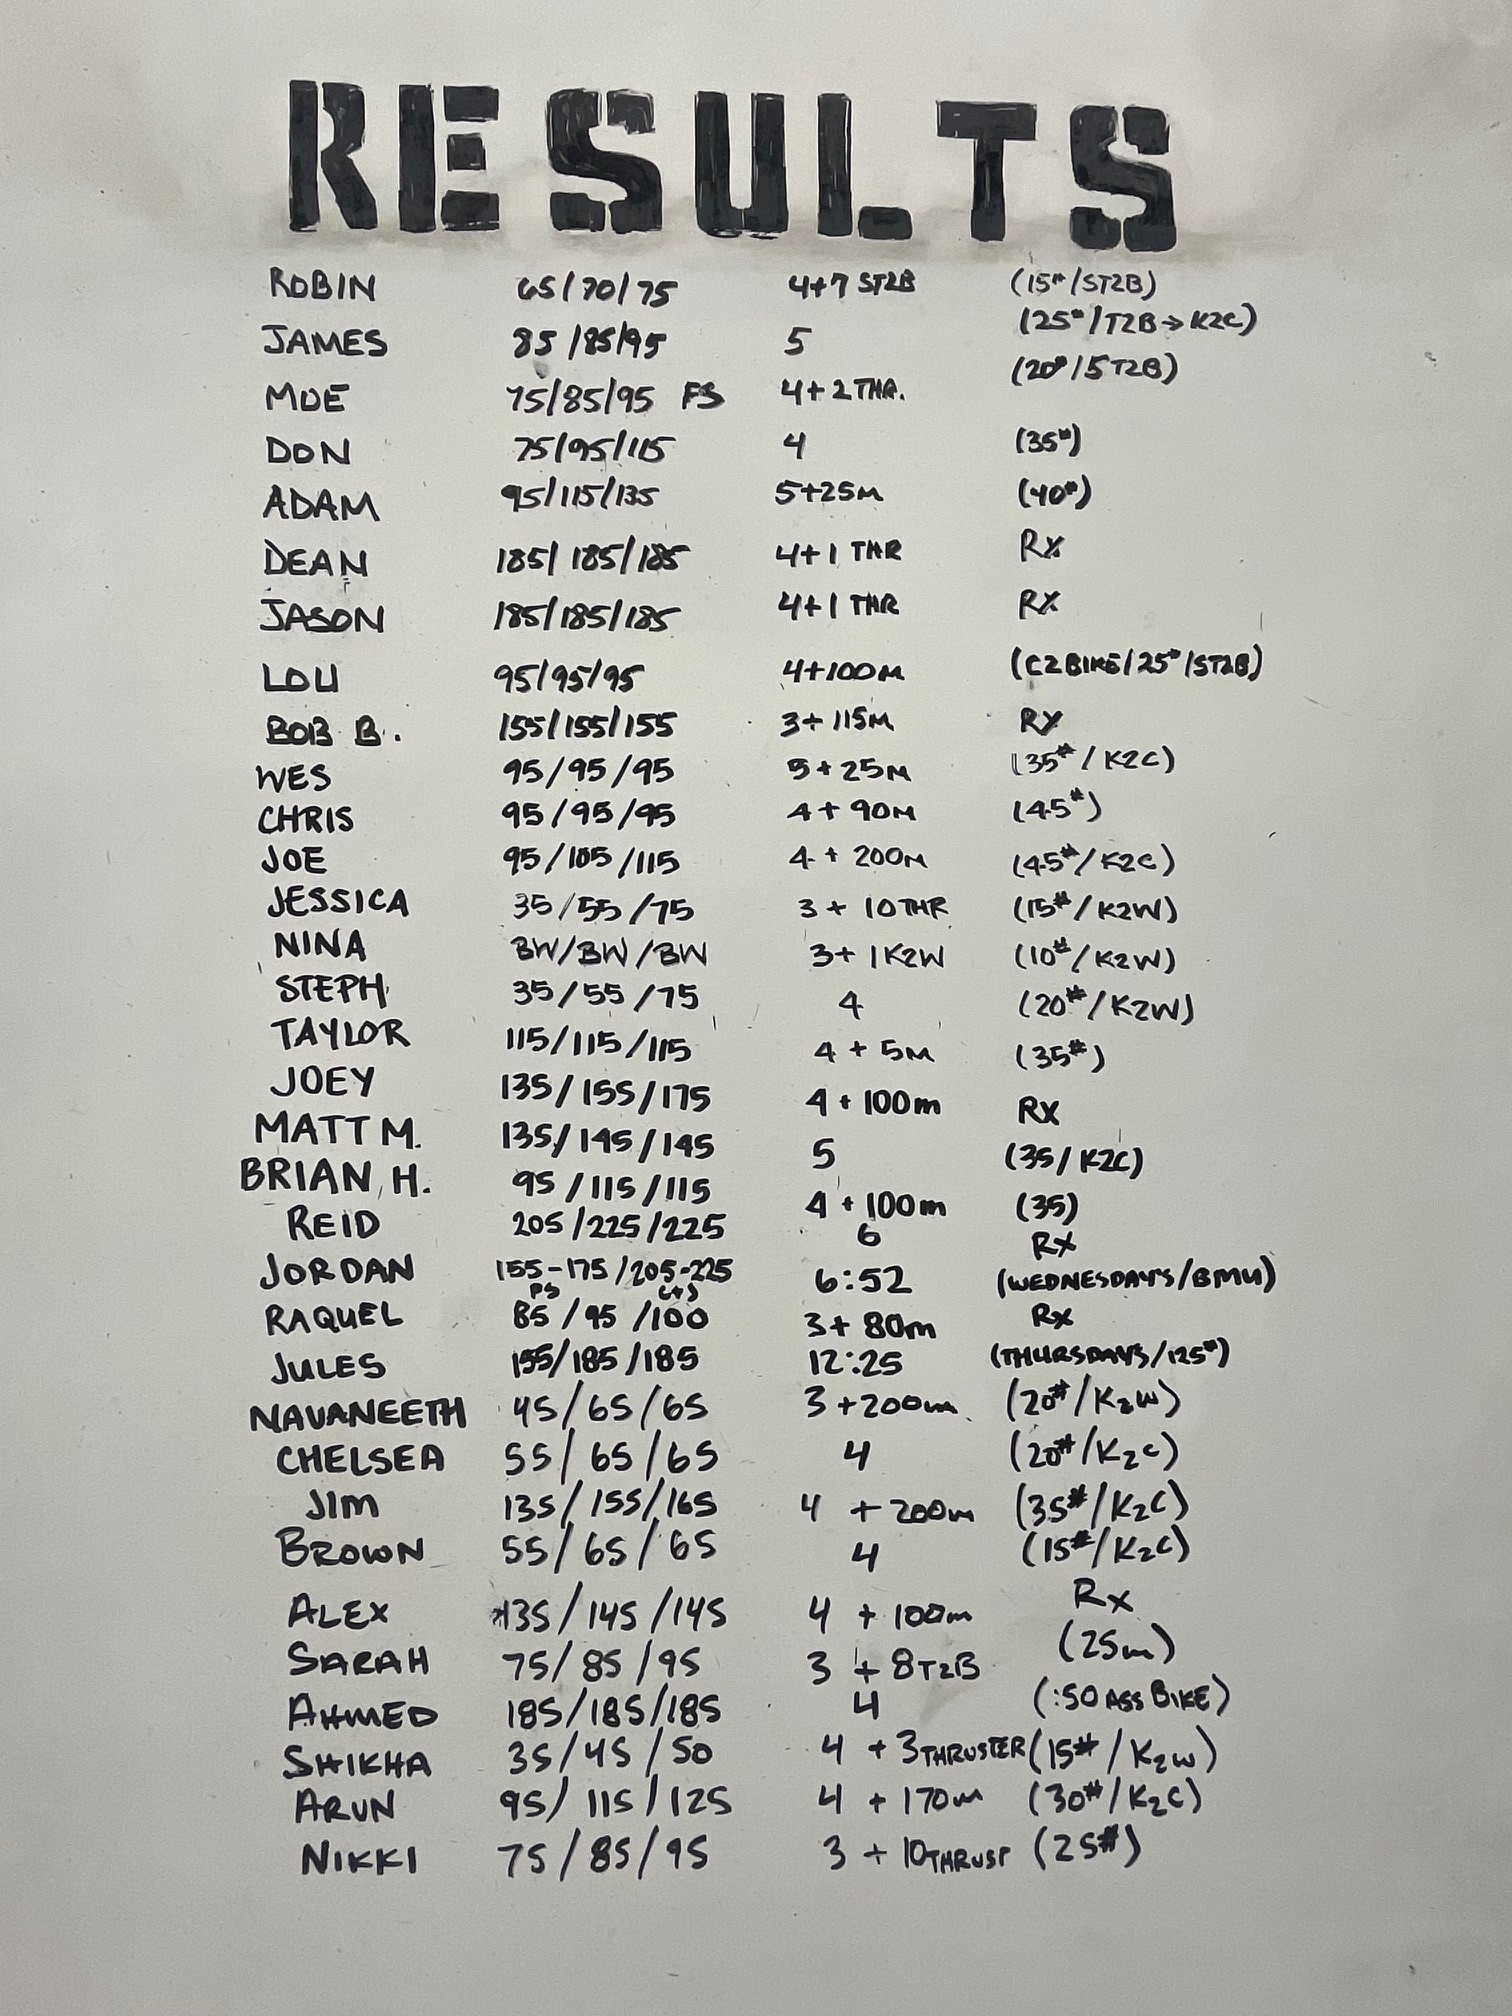 RESULTS
ROBIN 65/70/75 4+7 ST2B (15#/ST2B)
JAMES 85/85/95 5 (25#/T2B→K2C)
MOE 75/85/95 FS 4+2 THR. (20#/ST2B)
DON 75/95/115 4 (35#)
ADAM 95/115/135 5+25M (40#)
DEAN 185/185/185 4+1 THR Rx
JASON 185/185/185 4+1 THR Rx
LOU 95/95/95 4+100M (C2BIKE/25#/ST2B)
BOB B. 155/155/155 3+115M Rx
WES 95/95/95 5+25M (35#/K2C)
CHRIS 95/95/95 4+90M (45#)
JOE 95/105/115 4+200M (45#/K2C)
JESSICA 35/55/75 3+10THR (15#/K2W)
NINA BW/BW/BW 3+1K2W (10#/K2W)
STEPH 35/55/75 4 (20#/K2W)
TAYLOR 115/115/115 4+5M (35#)
JOEY 135/155/175 4+100m Rx
MATT M. 135/145/145 5 (35/K2C)
BRIAN H. 95/115/115 4+100m (35)
REID 205/225/225 6 Rx
JORDAN 155-175/205-225 6:52 (WEDNESDAY'S/BMU)
PS C+J
RAQUEL 85/95/100 3+80m Rx
JULES 155/185/185 12:25 (THURSDAYS/125#)
NAVANEETH 45/65/65 3+200m (20#/K2W)
CHELSEA 55/65/65 4 (20#/K2C)
JIM 135/155/165 4+200m (35#/K2C)
BROWN 55/65/65 4 (15#/K2C)
ALEX 135/145/145 4+100m Rx
SARAH 75/85/95 3+8T2B (25m)
AHMED 185/185/185 4 (:50 ASS BIKE)
SHIKHA 35/45/50 4+3THRUSTER (15#/K2W)
ARUN 95/115/125 4+170m (30#/K2C)
NIKKI 75/85/95 3+10THRUST (25#)